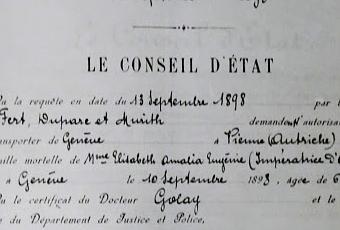 LE CONSEIL D'ÉTAT
Vu la requête en date du 13 Septembre 1898 par
Fert, Duparc et Murith demandent autorisa
transporter de Genève à Vienne (Autriche)
mortelle de Mme Elisabeth Amalia Eugénie (Impératrice d'
à Genève le 10 Septembre 1898, agée de 6
Vu le certificat du Docteur Golay et le
du Département de Justice et Police,